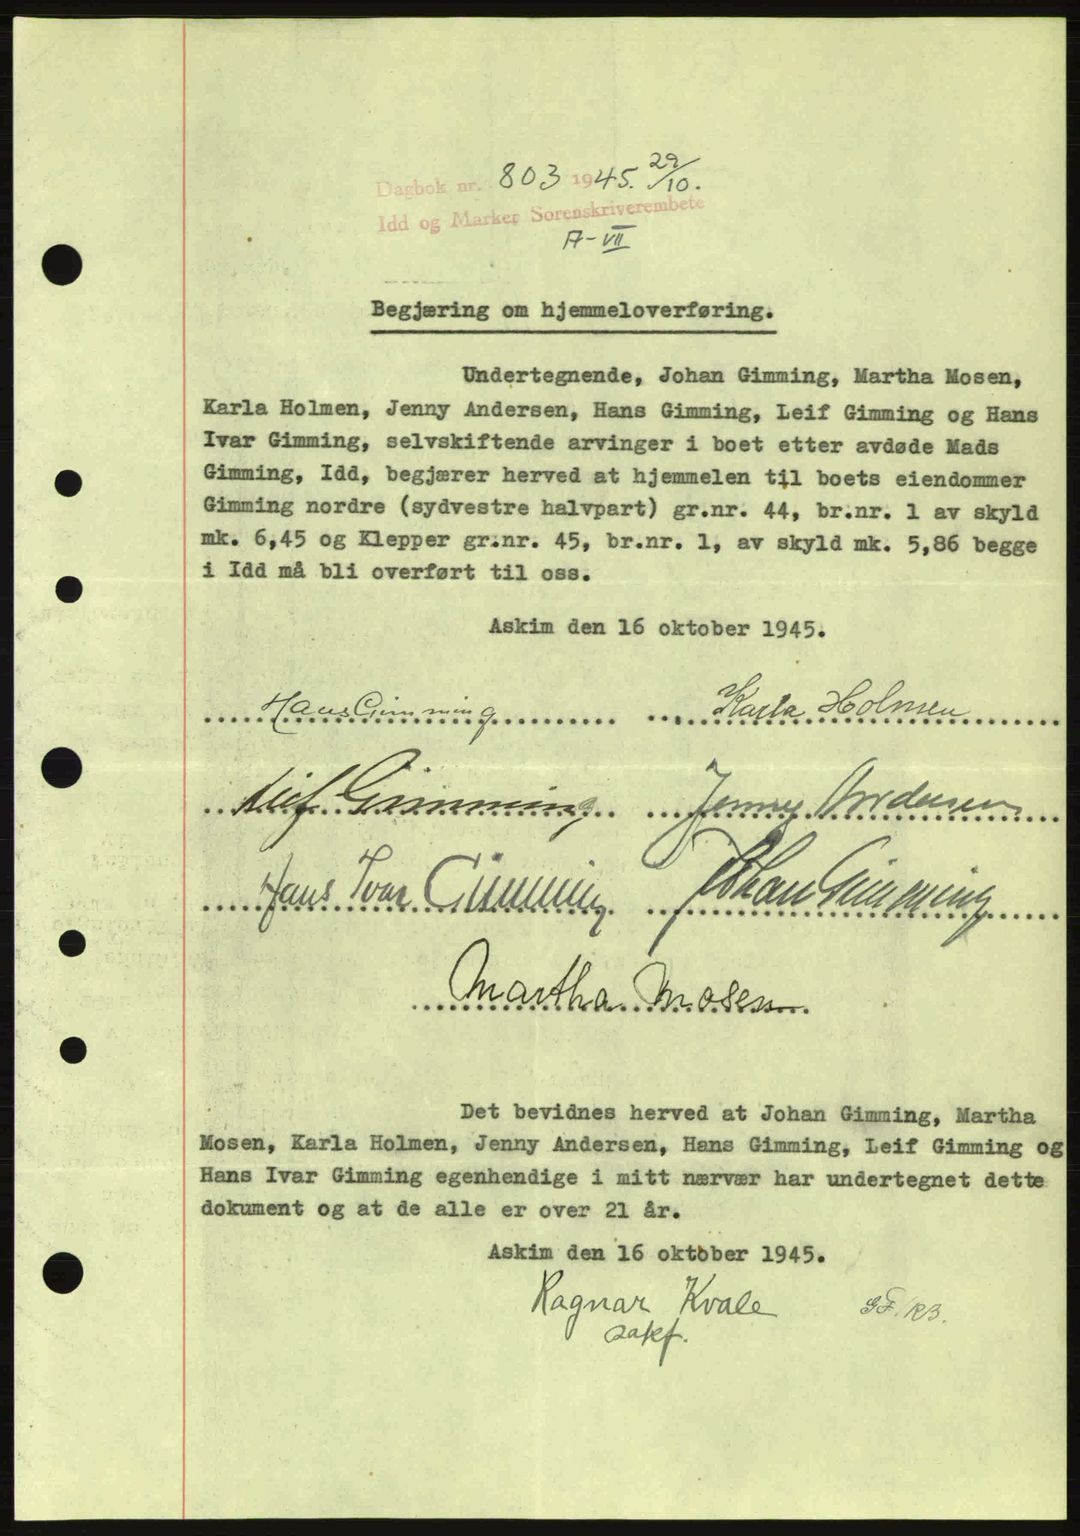 Dagbok nr. 803 1945. 29/10.
Idd og Marker Sorenskriverembete
A-VII
Begjæring om hjemmeloverføring.
Undertegnende, Johan Gimming, Martha Mosen,
Karla Holmen, Jenny Andersen, Hans Gimming, Leif Gimming og Hans
Ivar Gimming, selvskiftende arvinger i boet etter avdøde Mads
Gimming, Idd, begjærer herved at hjemmelen til boets eiendommer
Gimming nordre (sydvestre halvpart) gr.nr. 44, br.nr. 1 av skyld
mk. 6,45 og Klepper gr.nr. 45, br.nr. 1, av skyld mk. 5,86 begge
i Idd må bli overført til oss.
Askim den 16 oktober 1945.
Hans Gimming Karla Holmen
Leif Gimming Jenny Andersen
Hans Ivar Gimming Johan Gimming
Martha Mosen
Det bevidnes herved at Johan Gimming, Martha
Mosen, Karla Holmen, Jenny Andersen, Hans Gimming, Leif Gimming og
Hans Ivar Gimming egenhendige i mitt nærvær har undertegnet dette
dokument og at de alle er over 21 år.
Askim den 16 oktober 1945.
Ragnar Kvale GF/RB.
sakf.